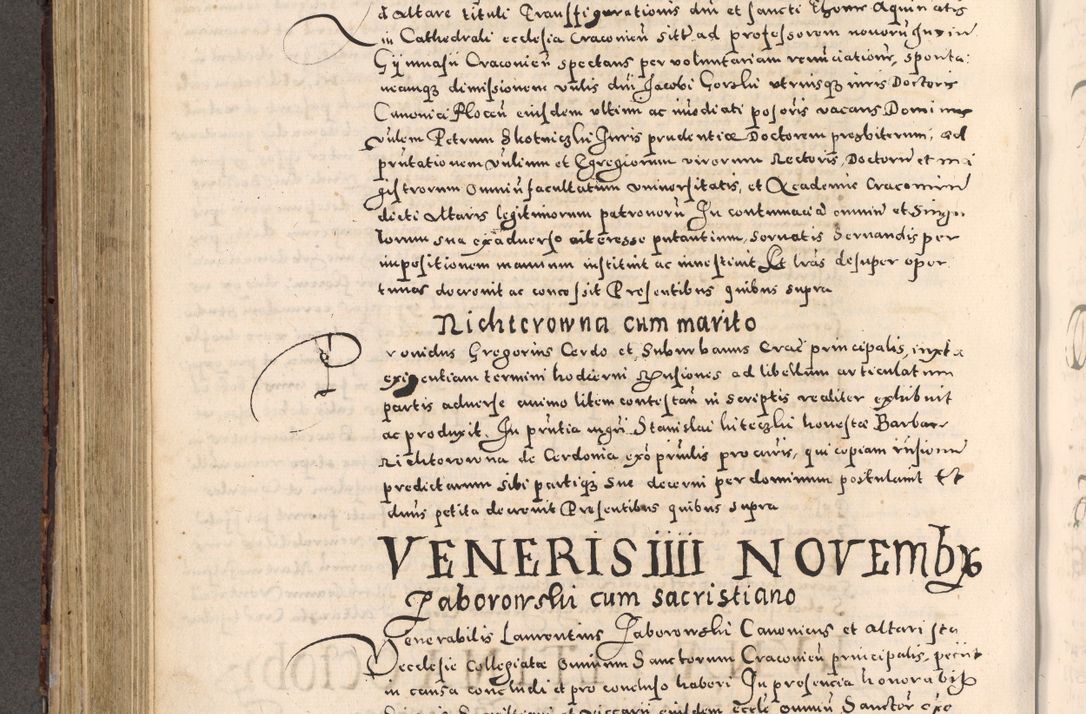 d Altare tituli Transfigurationis dni et sancti Thome Aquinatis
in Cathedrali ecclesia Cracovien sitt ad professorem novoru Juxin
Gymnasii Cracovien spectans per voluntariam renunciatione, sponta:
neamqз dimissionem vnlis dni Jacobi Gorskii vtriusqз iuris Doctoris
Canonici Plocen eiusdem vltimi ac imediati posoris vacans Domi
vnlem Petrum Skotniczki Juris prudentiæ Doctorem presbiterum, ad
prntationem vnlium et Egregiorum virorum Rectoris, Doctoru et ma
gistrorum omniu facultatum vniversitatis, et Academie Cracovien
dicti Altaris legitimorum patronoru In contumacia omniu et Singu
lorum sua exadverso interesse putantium, servatis servandis per
impositionem manuum instituit ac investivit Et lras desuper opor
tunas decrevit ac concessit Presentibus quibus supra
Richterowna cum marito
rovidus Gregorius Cerdo et Suburbanus Crac principalis, iuxta
exigentiam termini hodierni Rnsiones ad libellum articulatum
partis adverse animo litem contestan in scriptis realiter exhibuit
ac produxit. In prntia mgri Stanislai honestæ Barbare
Richterowna de Cerdonia exo prinlis procuris, qui copiam rnsionu
predictarum sibi partiqз sue decerni per dominum postulavit Et
dnus petita decrevit Presentibus quibus supra
VENERIS IIII NOVEMbꝶ
Zaborowski cum sacristiano
Venerabilis Laurentius Zaborowski Canonicus et Altarista
ecclesie Collegiatæ Omnium Sanctorum Cracovien principalis, petiit
in causa concludi et pro concluso haberi In presencia honorabilis
et viccarii eiusdem eccle Omniu Sanctor exo